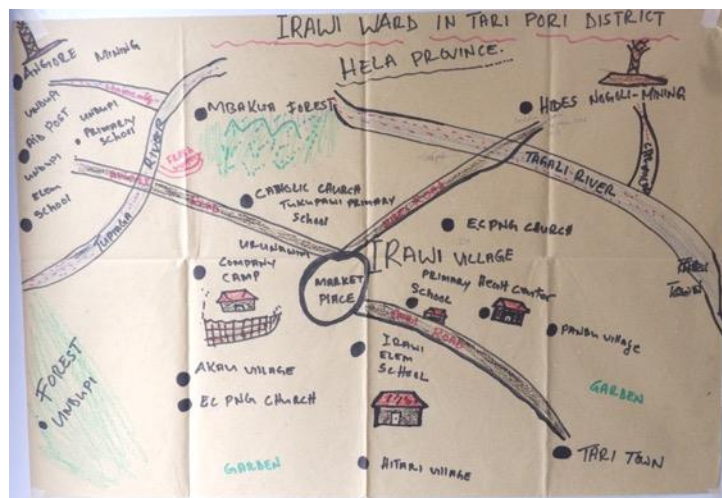 IRAWI WARD IN TARI PORI DISTRICT
HELA PROVINCE.
ANGIORE MINING
UNBUPI
AID POST
UNBUPI
PRIMARY
SCHOOL
UNBUPI
ELEM
SCHOOL
TUPIAGA RIVER
MBAKUA FOREST
HIDES NOGOLI-MINING
TAGALI-RIVER
TARI
TOWN
CATHOLIC CHURCH
TUKUPAWI PRIMARY
SCHOOL
ROAD
ROAD
EC PNG CHURCH
IRAWI VILLAGE
COMPANY
CAMP
MARKET
PLACE
PRIMARY
SCHOOL
HEALT CENTER
ROAD
PANDU VILLAGE
IRAWI
ELEM
SCHOOL
AKAU VILLAGE
EC PNG CHURCH
FOREST
UNBUPI
GARDEN
GARDEN
HITARI VILLAGE
TARI TOWN